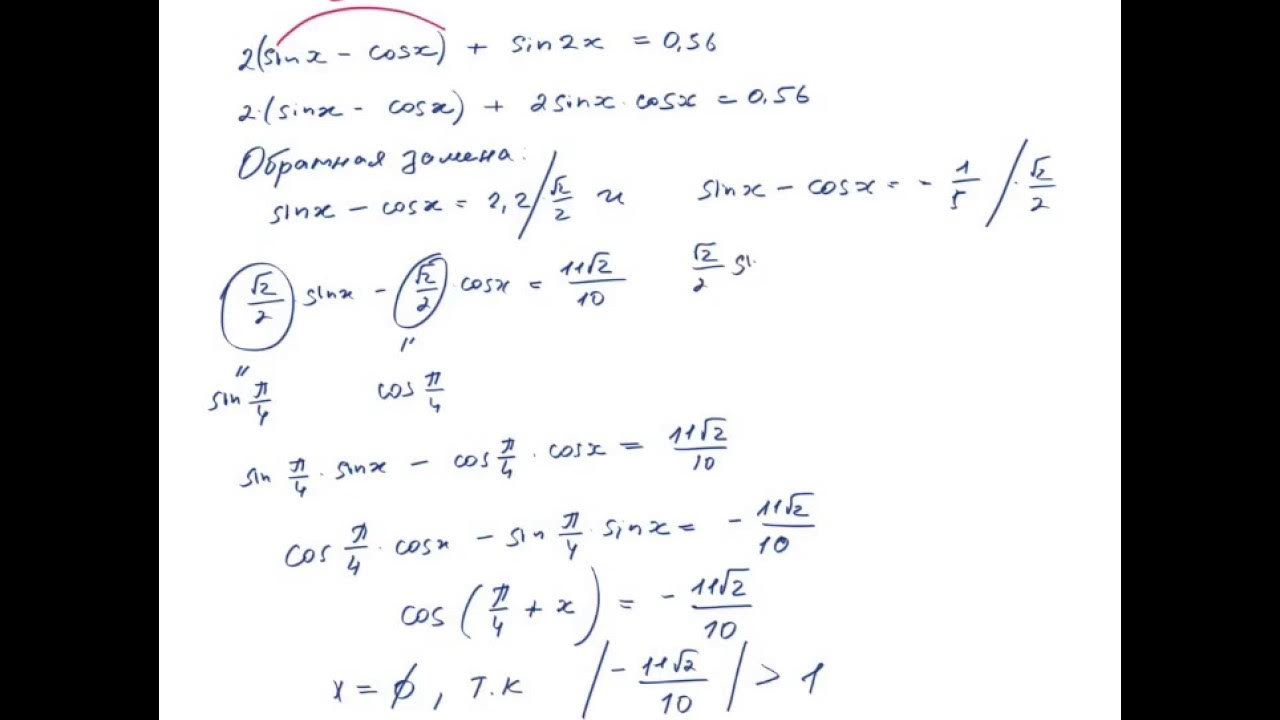 2(sin x - cos x) + sin 2x = 0,56
2·(sin x - cos x) + 2 sin x · cos x = 0,56
Обратная замена:
sin x - cos x = 2,2 / √2/2 и sin x - cos x = - 1/5 / · √2/2
√2/2 sin x - √2/2 cos x = 11√2/10 √2/2 si
" "
sin π/4 cos π/4
sin π/4 · sin x - cos π/4 · cos x = 11√2/10
cos π/4 · cos x - sin π/4 · sin x = - 11√2/10
cos (π/4 + x) = - 11√2/10
x = ∅, т.к |- 11√2/10| > 1